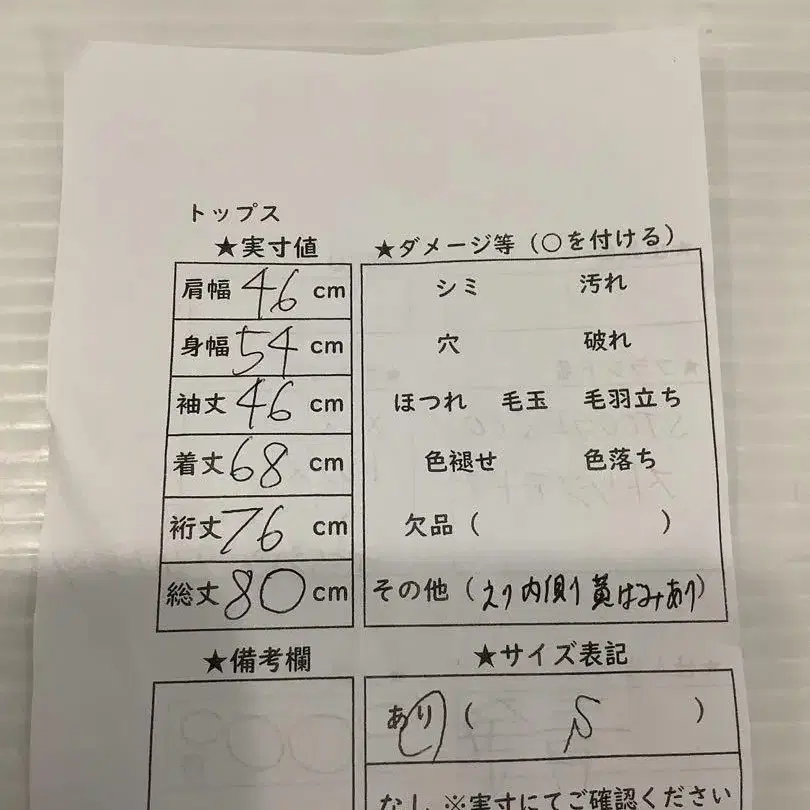 トップス
★実寸値
肩幅 46 cm
身幅 54 cm
袖丈 46 cm
着丈 68 cm
裄丈 76 cm
総丈 80 cm
★ダメージ等（○を付ける）
シミ 汚れ
穴 破れ
ほつれ 毛玉 毛羽立ち
色褪せ 色落ち
欠品（ ）
その他（えり内側り黄ばみあり）
★備考欄
★サイズ表記
あり（ S ）
なし ※実寸にてご確認ください